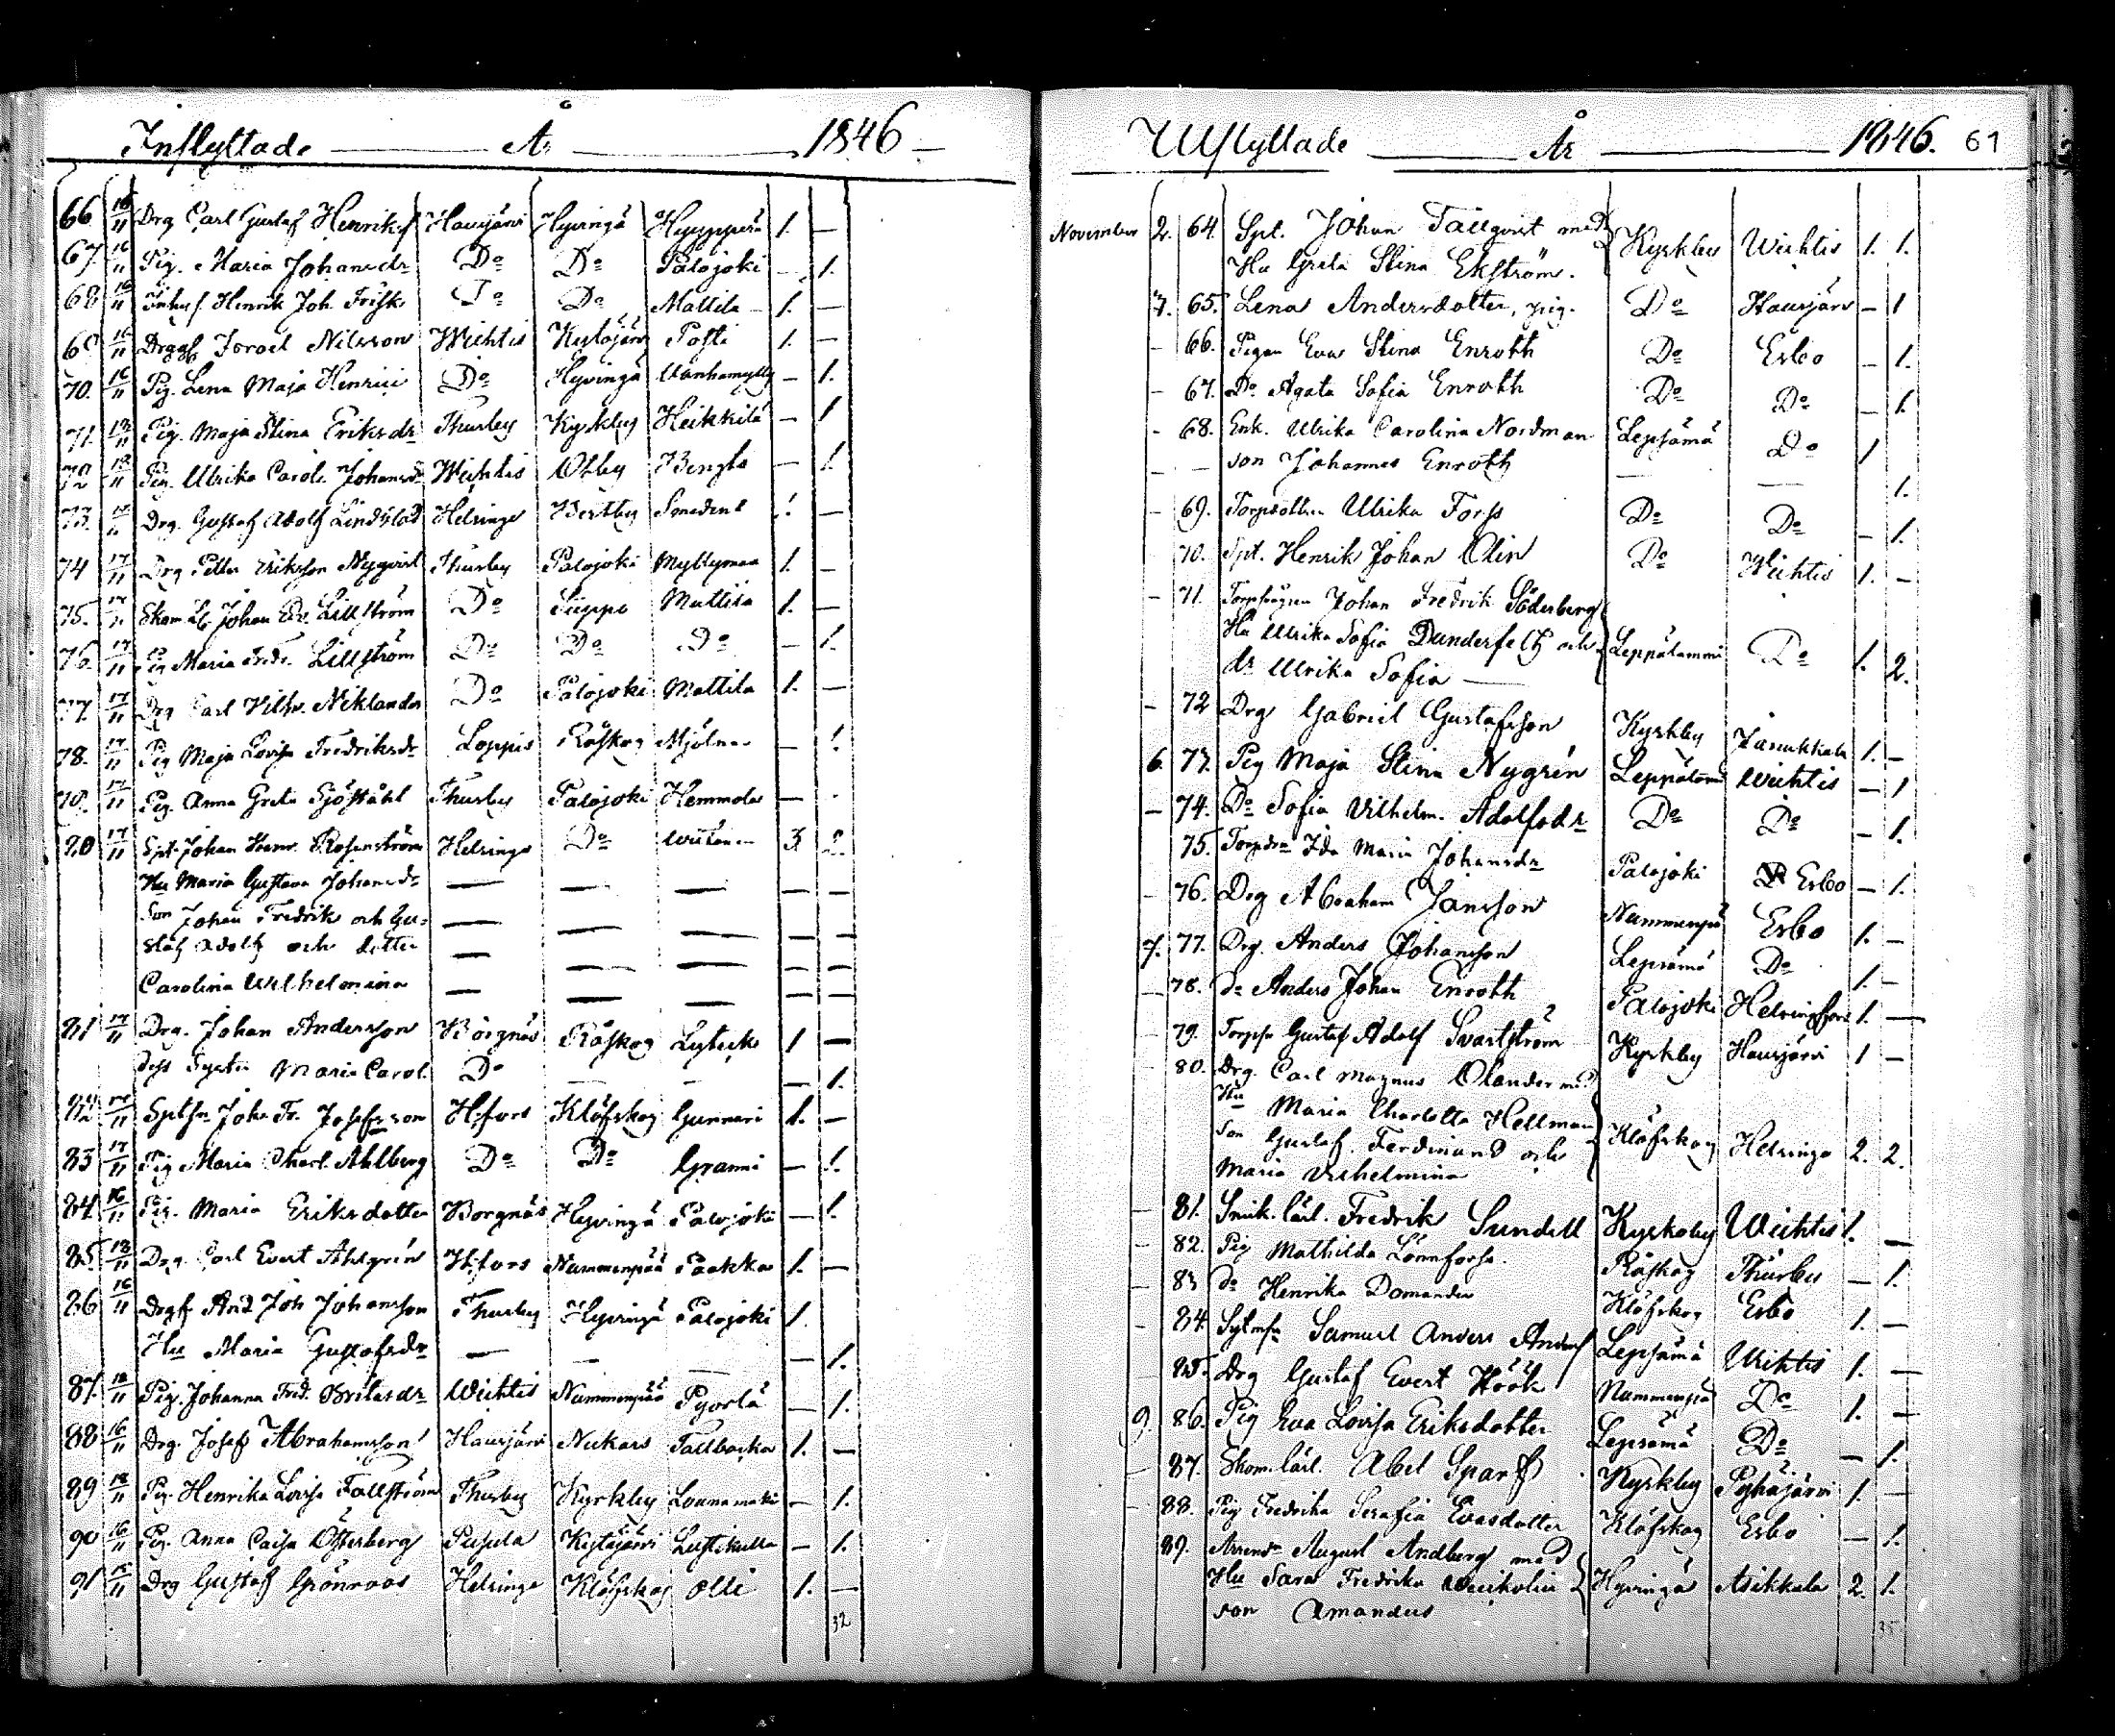 Inflyttade År 1846
66 16/11 Drg Carl Gustaf Henriks Hausjärvi Hyvingä Hyyppärä 1. —
67. 16/11 Pig. Maria Johansdr Do Do Palojoki — 1.
68 16/11 Henrik Joh. Frisk Do Do Mattila 1. —
69 16/11 Israel Nilsson Wichtis Kytäjärvi Posti 1. —
70. 16/11 Pig. Lena Maja Henrici Do Hyvingä Wanhamylly — 1.
71. 18/11 Pig. Maja Stina Eriksdr Thusby Kyrkby Heikkilä — 1
72 18/11 Pig. Ulrika Carol. Johansdr Wichtis Ohby Bengts — 1.
73. Drg. Gustaf Adolf Lindblad Helsinge Bertby Smedens 1. —
74 17/11 Drg Petter Eriksson Nyqvist Thusby Palojoki Myllymaa 1. —
75. 17/11 Skom. Johan Lillström Do Seppo Mattila 1. —
76. 17/11 Pig Maria Lillström Do Do Do — 1.
77. 17/11 Drg Carl Vilh. Niklander Do Palojoki Mattila 1. —
78. 17/11 Pig Maja Lovisa Fredriksdr Loppis Röskog Mjölnar — 1.
79. 17/11 Pig. Anna Greta Sjöståhl Thusby Palojoki Hemmola —
80 17/11 Spt. Johan Henr. Rosenström Helsinge Do 3. 2.
Hu Maria Gustava Johansdr — — — — —
Son Johan Fredrik och Gu- — — — — —
staf Adolf och dotter — — — — —
Carolina Wilhelmina — — — — —
81 17/11 Drg. Johan Andersson Borgnäs Röskog 1 —
dess Syster Maria Carol. Do — — — 1.
82 17/11 Joh. Fr. Josefsson H:fors Klöfskog Gunnari 1. —
83 17/11 Pig Maria Charl. Ahlberg Do Do Granni — 1.
84. 16/11 Pig. Maria Eriksdotter Borgnäs Hyvingä Palojoki — 1.
85 18/11 Drg. Carl Evert Ahlgrén H:fors Nummenpää Paakka 1. —
86 16/11 And Joh Johansson Thusby Hyvingä Palojoki 1.
Hu Maria Gustafsdr — — — — 1.
87. 18/11 Pig. Johanna Fred. Britasdr Wichtis Nummenpää Pyörlä — 1.
88 16/11 Drg. Josef Abrahamsson Hausjärvi Nukars Tallbacka 1. —
89 18/11 Pig. Henrika Lovisa Fallström Thusby Kyrkby Lounamäki — 1.
90 16/11 Pig. Anna Caisa Österberg Pusula Kytäjärvi Lustikulla — 1.
91 18/11 Drg Gustaf Grönroos Helsinge Klöfskog Olli 1. —
32
Utflyttade År 1846. 61
November 2. 64. Spt. Johan Tallqvist med
Hu Greta Stina Ekström. Kyrkby Wichtis 1. 1.
3. 65. Lena Andersdotter, pig. Do Hausjärvi — 1
— 66. Pigan Eva Stina Enroth Do Esbo — 1.
— 67. Do Agata Sofia Enroth Do Do — 1.
- 68. Enk. Ulrika Carolina Nordman Lepsämä Do 1
— — son Johannes Enroth — — 1.
— 69. Ulrika Forss Do Do — 1.
70. Spt. Henrik Johan Olin Do Wichtis 1. —
— 71. Johan Fredrik Söderberg
Hu Ulrika Sofia Dunderfelt och Leppälammi Do 1. 2.
dr Ulrika Sofia —
— 72 Drg Gabriel Gustafsson Kyrkby Janakkala 1. —
6. 73. Pig Maja Stina Nygrén Leppälammi Wichtis — 1
— 74. Do Sofia Vilhelm. Adolfsdr Do Do — 1.
75. Ida Maria Johansdr Palojoki Esbo — 1.
— 76. Drg Abraham Jansson Nummenpää Esbo 1. —
7. 77. Drg. Anders Johansson Lepsämä Do 1. —
— 78. do Anders Johan Enroth Palojoki Helsingfors 1. —
— 79. Gustaf Adolf Svartström Kyrkby Hausjärvi 1 —
80. Drg. Carl Magnus Olander med
Hu Maria Charlotta Hellman
Son Gustaf Ferdinand och Klöfskog Helsinge 2. 2.
Maria Vilhelmina
— 81. Snick. lärl. Fredrik Sundell Kyrkoby Wichtis 1. —
— 82. Pig Mathilda Lönnfors. Röskog Thusby — 1.
— 83 do Henrika Domander Klöfskog Esbo 1. —
— 84. Samuel Anders Lepsämä Wichtis 1. —
85. Drg Gustaf Evert Höök Nummenpää Do 1. —
9. 86. Pig Eva Lovisa Eriksdotter Lepsämä Do — 1.
— 87. Skom. lärl. Abel Sparf Kyrkby Pyhäjärvi 1. —
— 88. Pig Fredrika Serafia Evasdotter Klöfskog Esbo — 1.
89. August Andberg med
Hu Sara Fredrika Hyvingä Asikkala 2. 1.
son Amandus
35